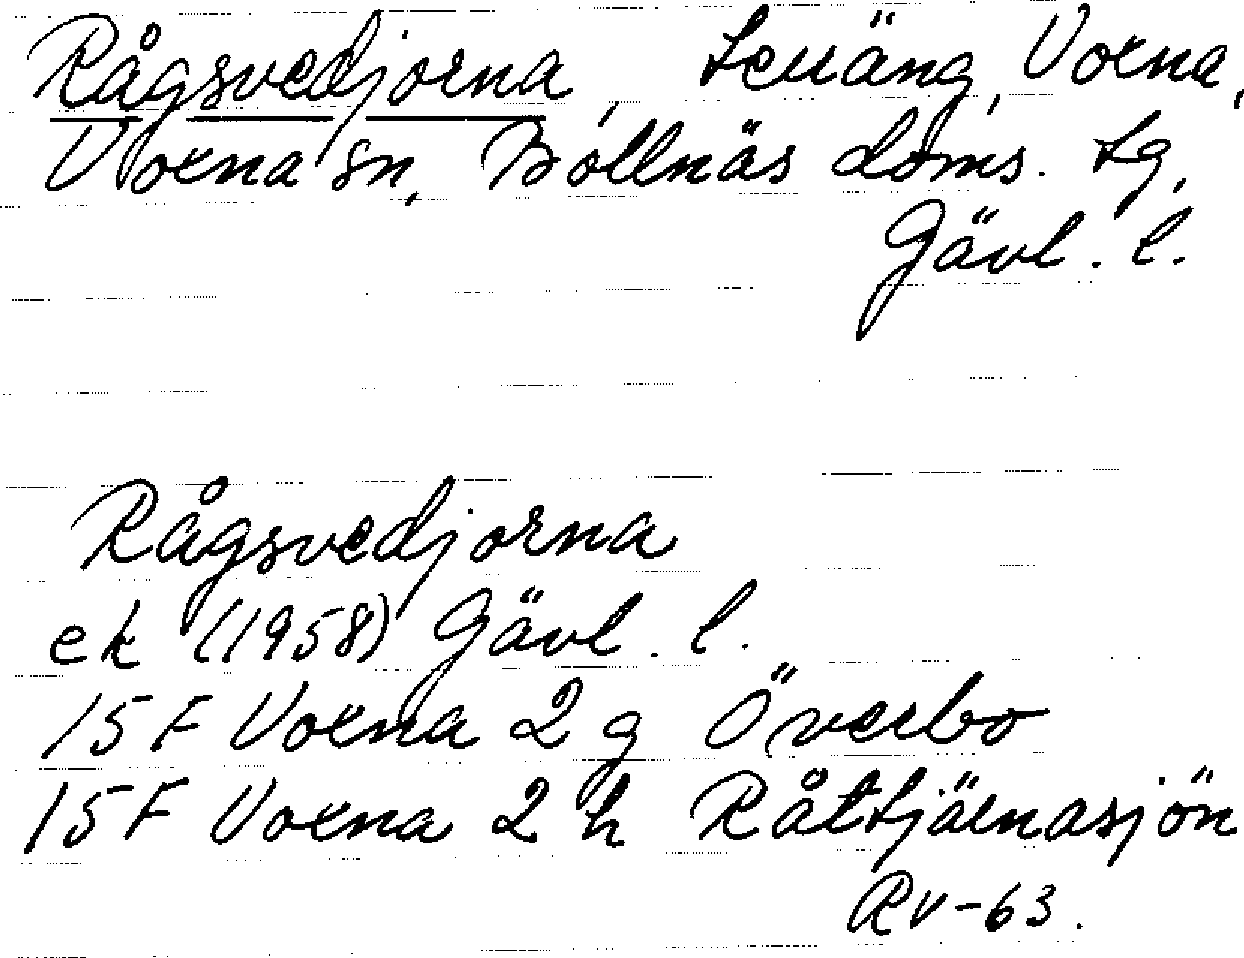 Rågsvedjorna, terräng, Voxna,
Voxna sn, Bollnäs doms. tg,
Gävl. l.
Rågsvedjorna
ek (1958) Gävl. l.
15 F Voxna 2 g Överbo
15 F Voxna 2 h Råttjärnasjön
RV-63.